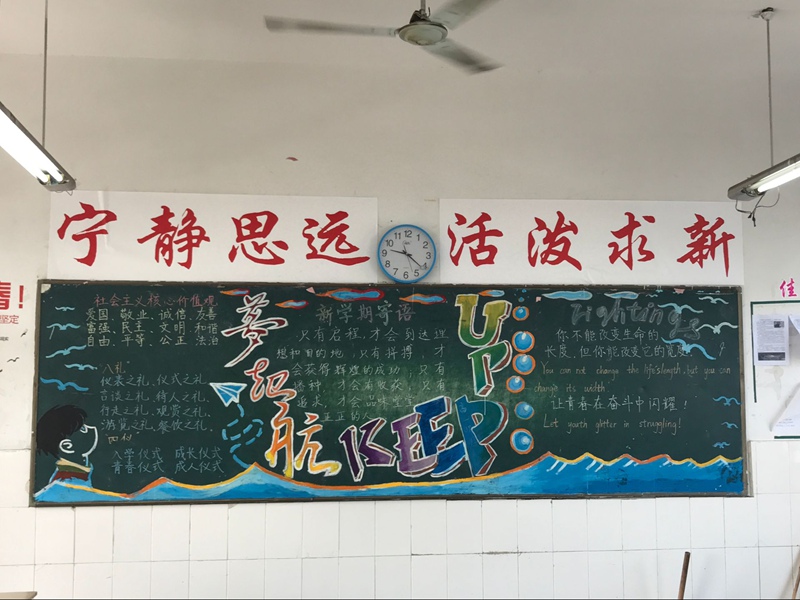 宁静思远
活泼求新
情!
坚定
佳
社会主义核心价值观
爱国、敬业、诚信、友善
富强、民主、文明、和谐
自由、平等、公正、法治
八礼
仪表之礼、仪式之礼、
言谈之礼、待人之礼、
行走之礼、观赏之礼、
游览之礼、餐饮之礼、
四仪
入学仪式 成长仪式
青春仪式 成人仪式
梦起航
新学期寄语
只有启程,才会到达理
想和目的地,只有拼搏,才
会获得辉煌的成功,只有
播种,才会有收获,只有
追求,才会品味堂堂
正正的人
KEEP
UP
Fighting
你不能改变生命的
长度,但你能改变它的宽度
You can not change the life's length,but you can
change its width.
让青春在奋斗中闪耀!
Let youth glitter in struggling!